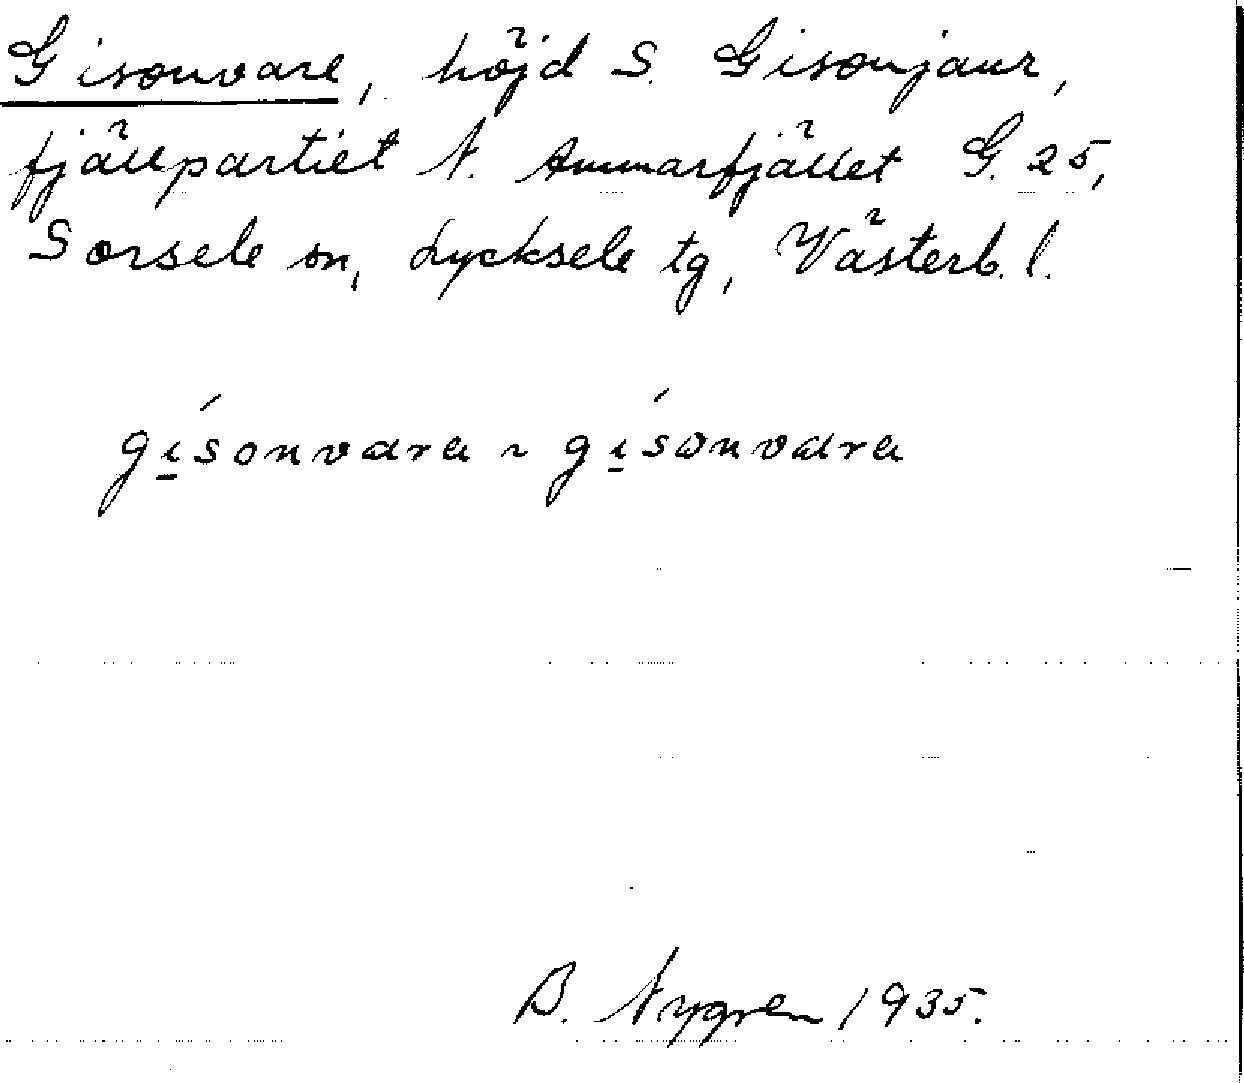 Gisonvare, höjd S. Gisonjaur,
fjällpartiet N. Ammarfjället G. 25,
Sorsele sn, Lycksele tg, Västerb. l.
gi̱´sonvara ~ gi̱´sɷnvara
B. Nygren 1935.